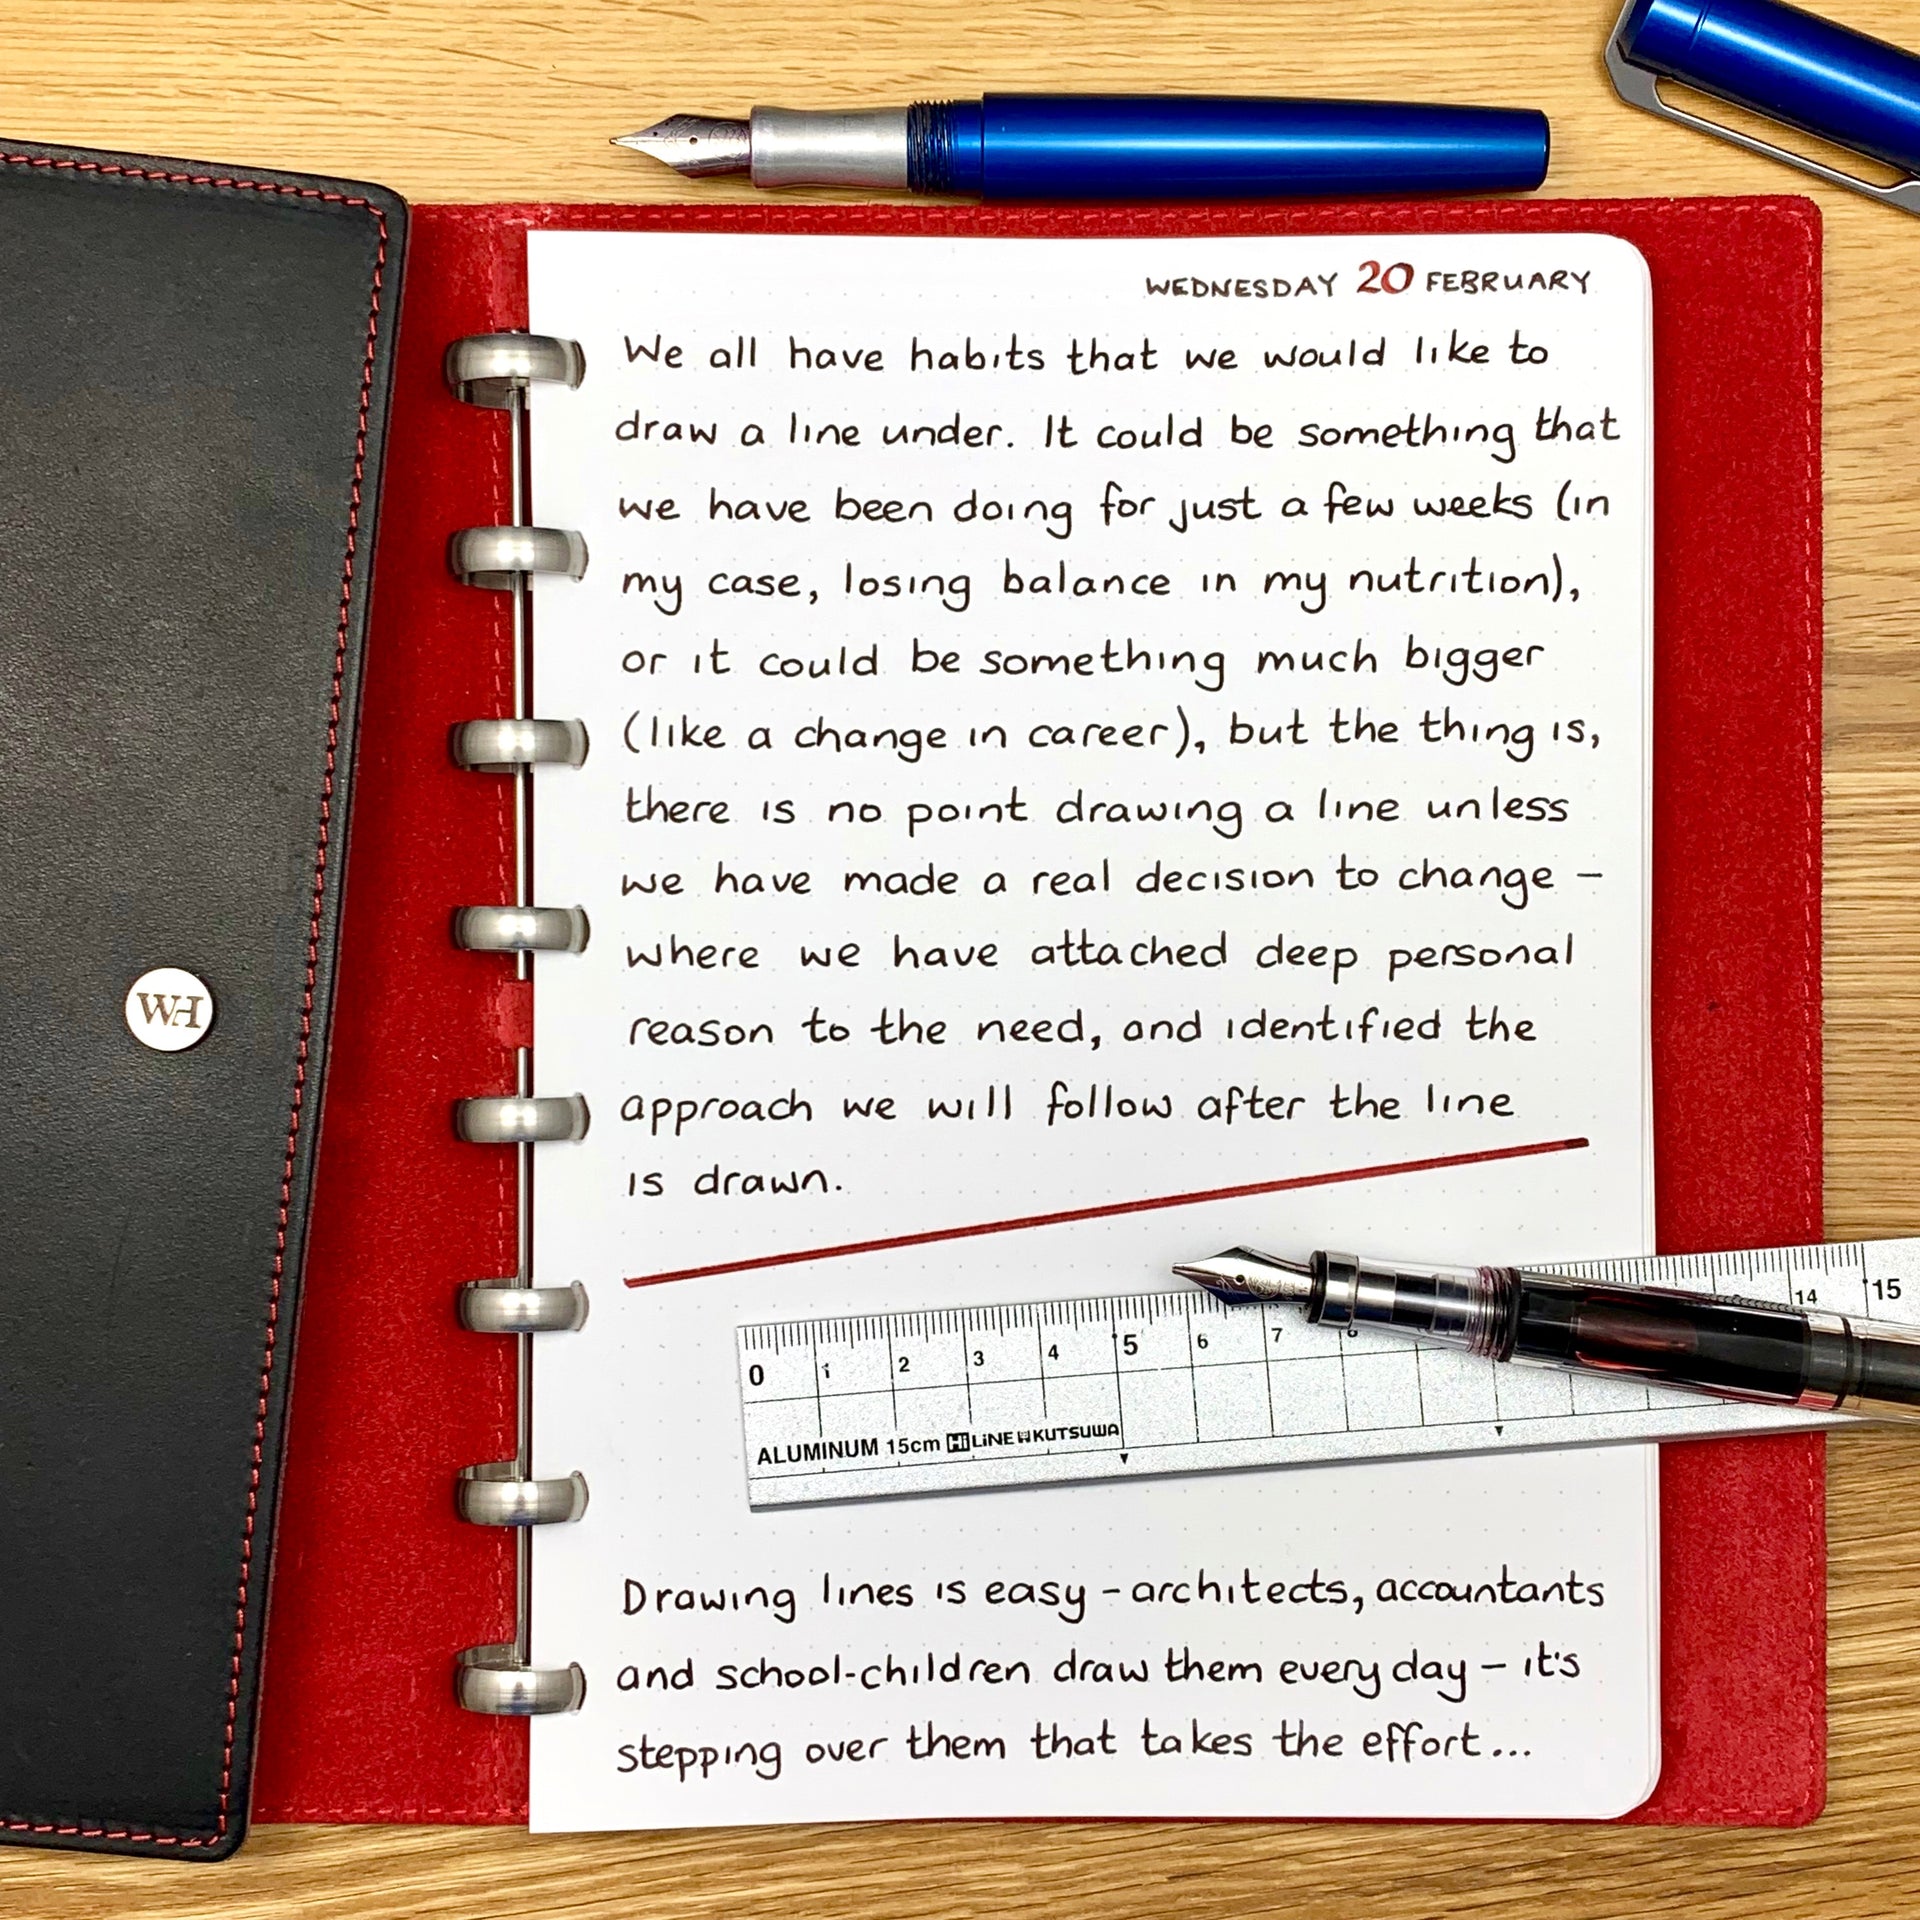 WEDNESDAY 20 FEBRUARY
We all have habits that we would like to
draw a line under. It could be something that
we have been doing for just a few weeks (in
my case, losing balance in my nutrition),
or it could be something much bigger
(like a change in career), but the thing is,
there is no point drawing a line unless
we have made a real decision to change –
where we have attached deep personal
reason to the need, and identified the
approach we will follow after the line
is drawn.
WH
0 1 2 3 4 5 6 7 8 14 15
ALUMINUM 15cm Hi LiNE KUTSUWA
Drawing lines is easy – architects, accountants
and school-children draw them every day – it's
stepping over them that takes the effort...